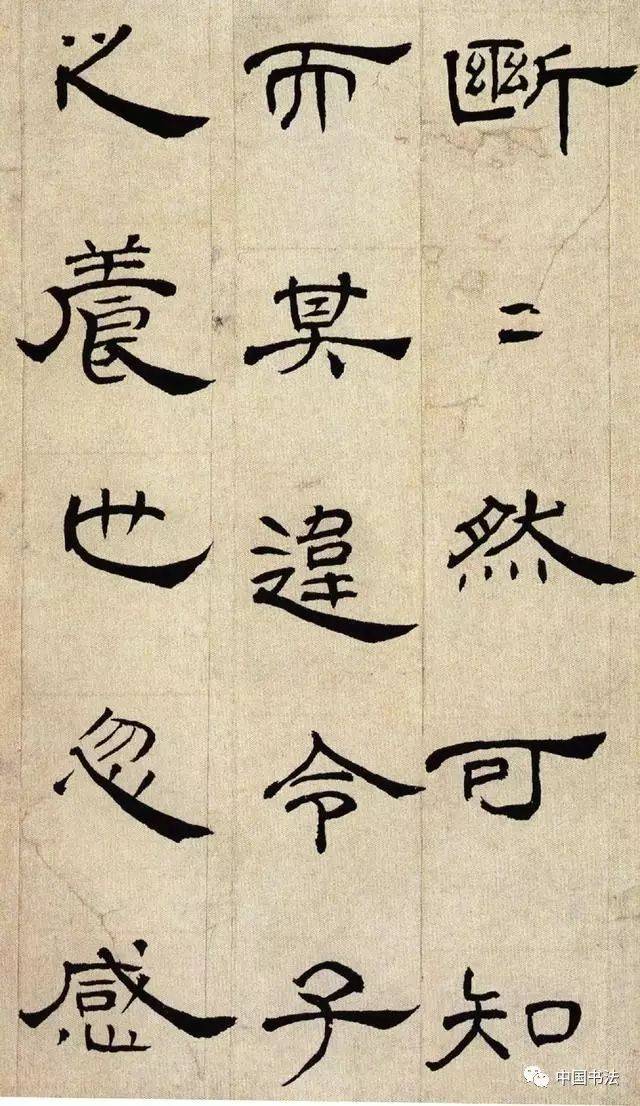 斷二然可知
而其違令子
之養也忽感
中国书法